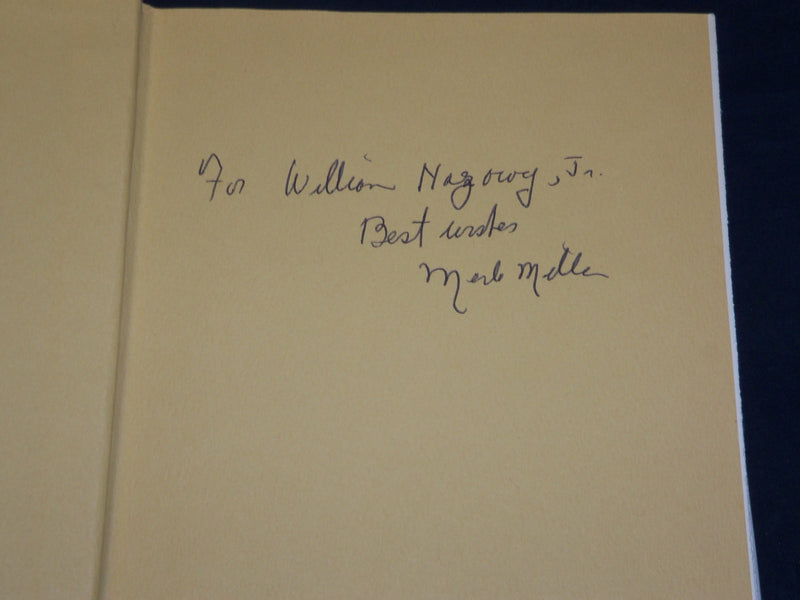 For William Nazowy, Jr.
Best wishes
Merle Miller